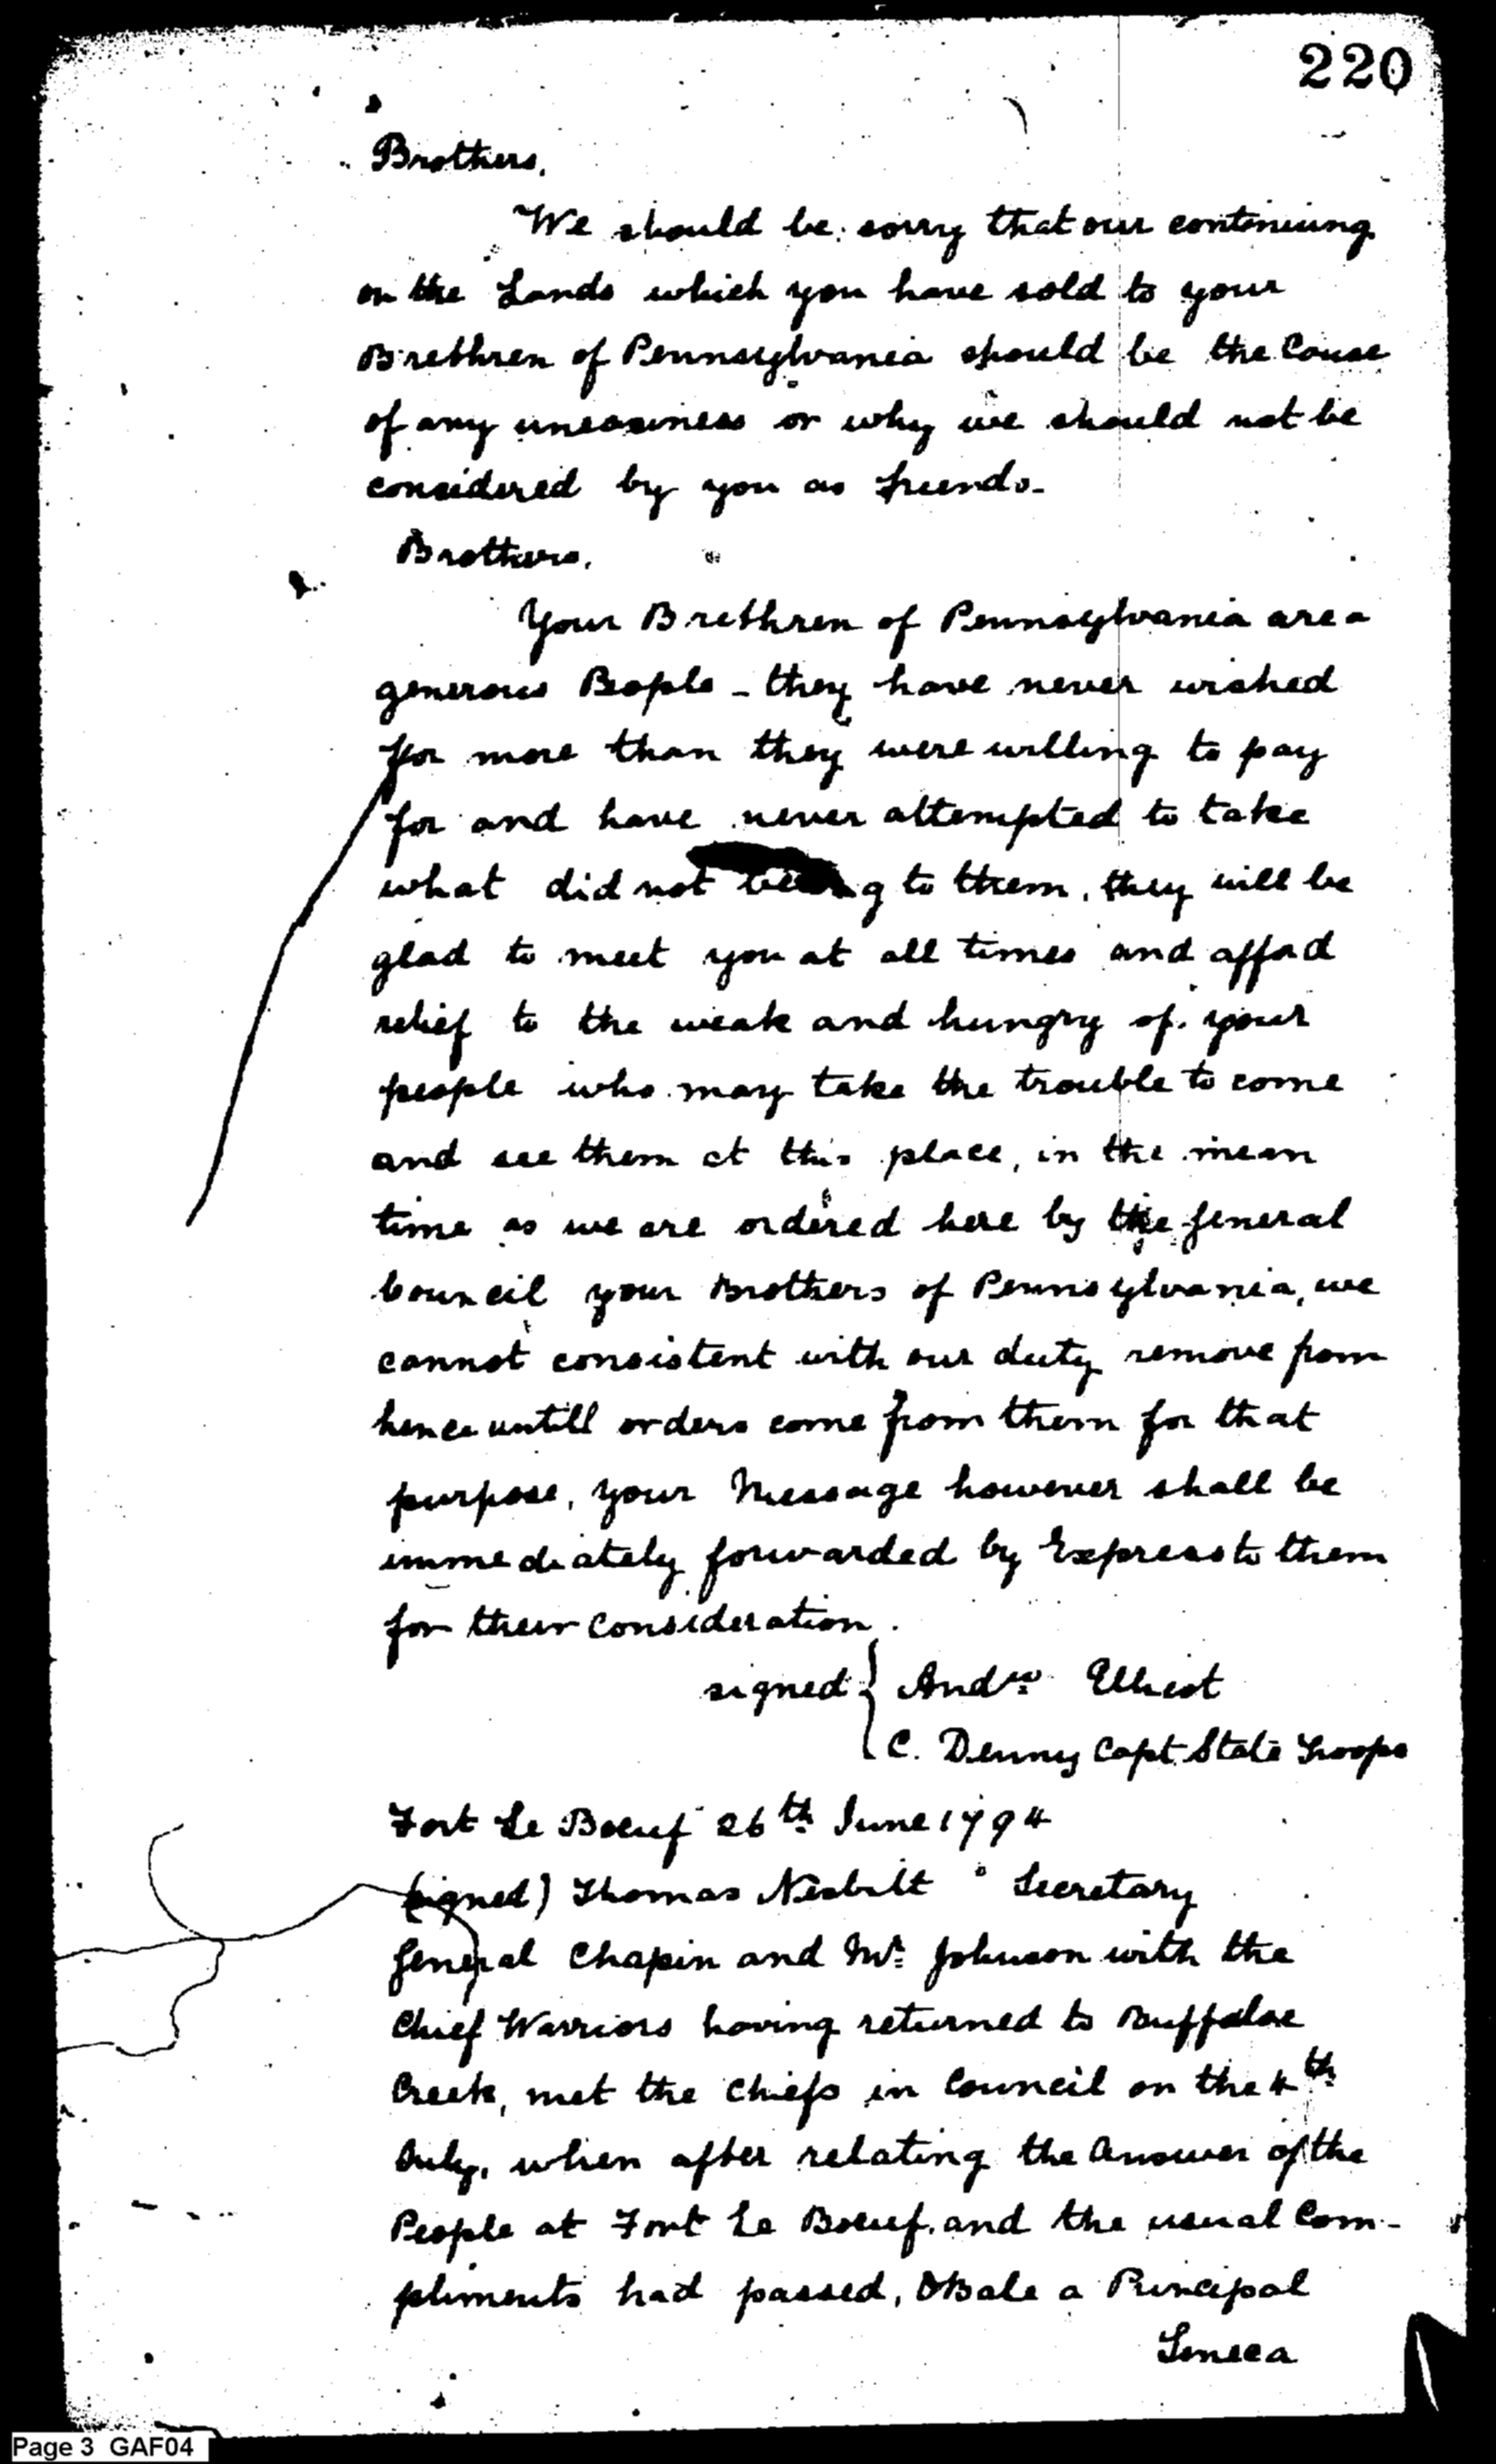 220
Brothers,
We should be sorry that our continuing
on the Lands which you have sold to your
Brethren of Pennsylvania should be the Cause
of any uneasiness or why we should not be
considered by you as friends.
Brothers,
Your Brethren of Pennsylvania are a
generous People - they have never wished
for more than they were willing to pay
for and have never attempted to take
what did not belong to them, they will be
glad to meet you at all times and afford
relief to the weak and hungry of your
people who may take the trouble to come
and see them at this place, in the mean
time as we are ordered here by the General
Council your Brothers of Pennsylvania, we
cannot consistent with our duty remove from
hence untill orders come from them for that
purpose, your Message however shall be
immediately forwarded by Express to them
for their Consideration.
signed { Andw Elliot
C. Denny Capt State Troops
Fort Le Boeuf 26th June 1794
(signed) Thomas Nesbitt Secretary
General Chapin and Mr Johnson with the
Chief Warriors having returned to Buffaloe
Creek, met the Chiefs in Council on the 4th
July, when after relating the Answer of the
People at Fort Le Boeuf and the usual Com-
pliments had passed, OBale a Principal
Seneca
Page 3 GAF04